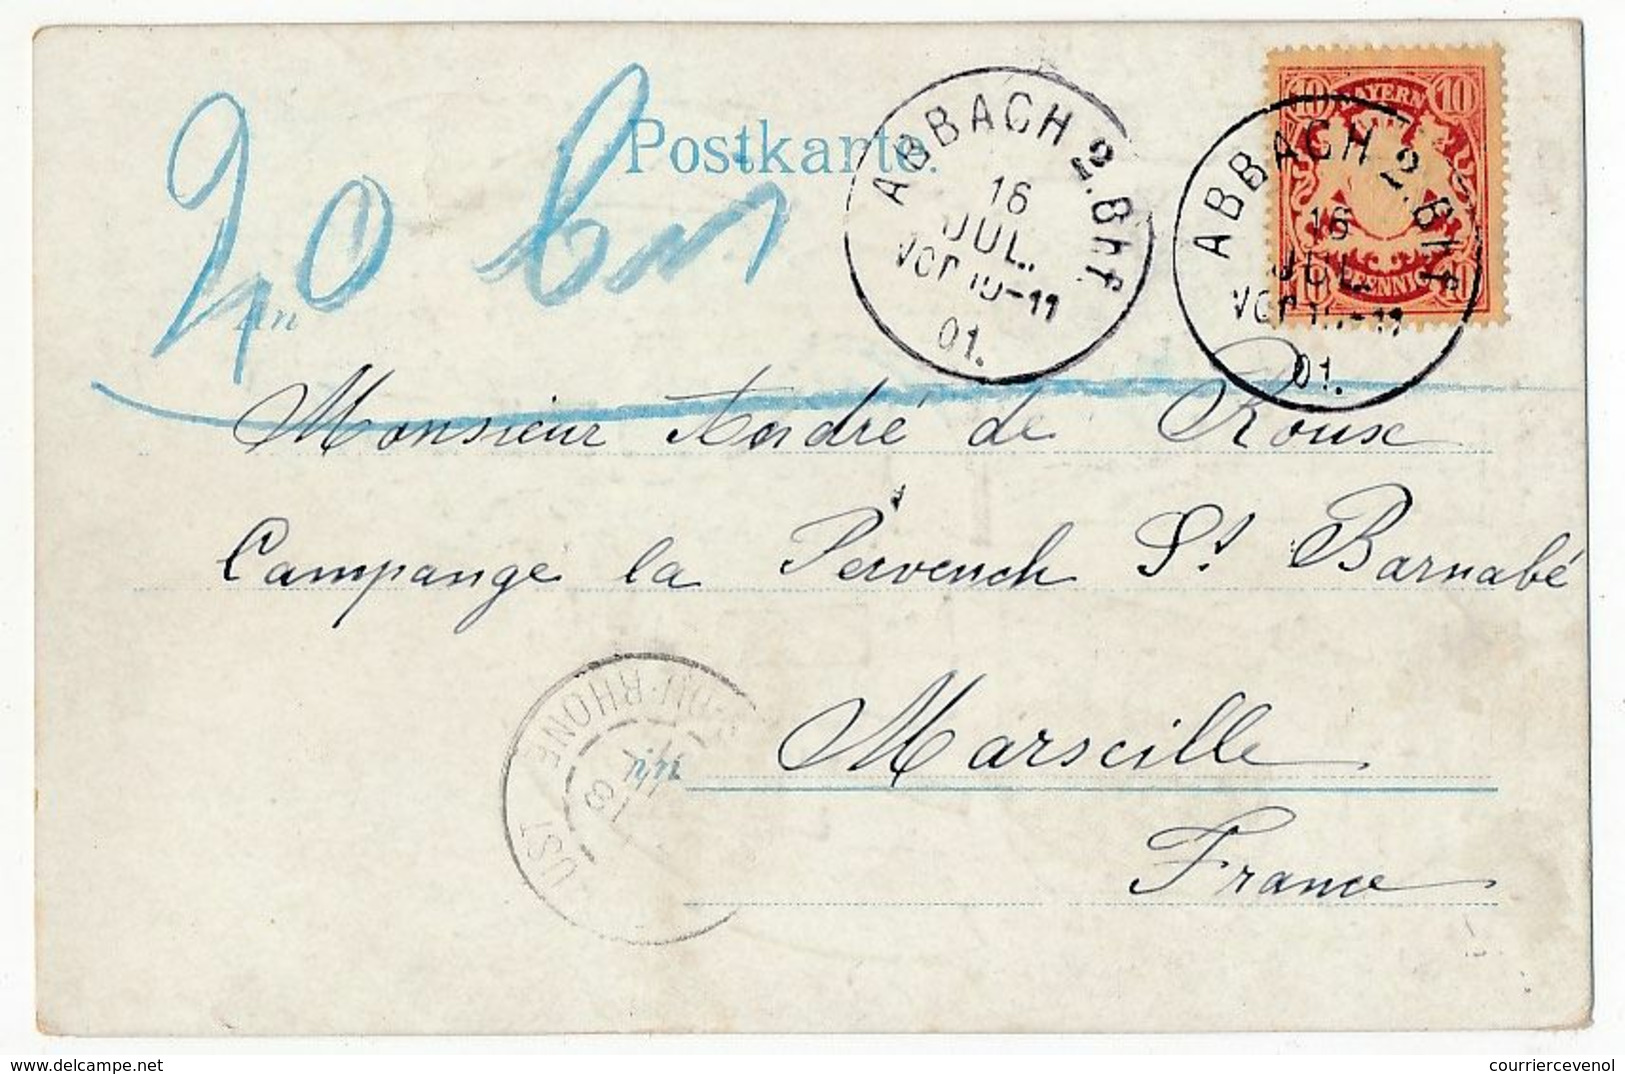 Postkarte.
ABBACH 2. Bhf.
16
JUL.
Vor 10-11
01.
ABBACH 2. Bhf.
16
JUL.
Vor 10-11
01.
10 BAYERN 10
10 PFENNIG 10
20
An
Monsieur André de Roux
Campange la Pervench St. Barnabé
in Marseille
France
DU-RHONE
18
delcampe.net
courriercevenol